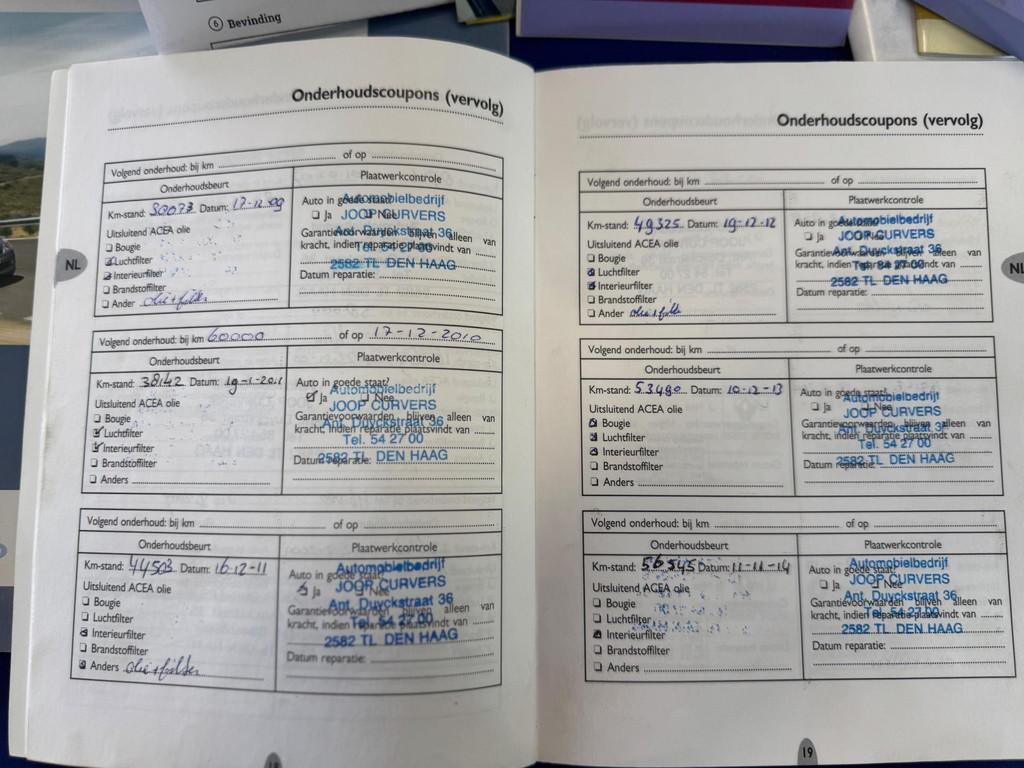 6 Bevinding
Onderhoudscoupons (vervolg)
Volgend onderhoud: bij km of op
Onderhoudsbeurt Plaatwerkcontrole
Km-stand: 30073 Datum: 17-12-09
Auto in goede staat?
Ja Nee
Uitsluitend ACEA olie
Bougie
Luchtfilter
Interieurfilter
Brandstoffilter
Ander olie+filter
Garantievoorwaarden blijven alleen van
kracht, indien reparatie plaatsvindt van
Datum reparatie:
Automobielbedrijf
JOOP CURVERS
Ant. Duyckstraat 36
Tel. 54 27 00
2582 TL DEN HAAG
NL
Volgend onderhoud: bij km 60000 of op 17-12-2010
Onderhoudsbeurt Plaatwerkcontrole
Km-stand: 38142 Datum: 19-1-2011
Auto in goede staat?
Ja Nee
Uitsluitend ACEA olie
Bougie
Luchtfilter
Interieurfilter
Brandstoffilter
Anders
Garantievoorwaarden blijven alleen van
kracht, indien reparatie plaatsvindt van
Datum reparatie:
Automobielbedrijf
JOOP CURVERS
Ant. Duyckstraat 36
Tel. 54 27 00
2582 TL DEN HAAG
Volgend onderhoud: bij km of op
Onderhoudsbeurt Plaatwerkcontrole
Km-stand: 44503 Datum: 16-12-11
Auto in goede staat?
Ja Nee
Uitsluitend ACEA olie
Bougie
Luchtfilter
Interieurfilter
Brandstoffilter
Anders olie+filter
Garantievoorwaarden blijven alleen van
kracht, indien reparatie plaatsvindt van
Datum reparatie:
Automobielbedrijf
JOOP CURVERS
Ant. Duyckstraat 36
Tel. 54 27 00
2582 TL DEN HAAG
18
Onderhoudscoupons (vervolg)
Volgend onderhoud: bij km of op
Onderhoudsbeurt Plaatwerkcontrole
Km-stand: 49325 Datum: 19-12-12
Auto in goede staat?
Ja Nee
Uitsluitend ACEA olie
Bougie
Luchtfilter
Interieurfilter
Brandstoffilter
Ander olie+filter
Garantievoorwaarden blijven alleen van
kracht, indien reparatie plaatsvindt van
Datum reparatie:
Automobielbedrijf
JOOP CURVERS
Ant. Duyckstraat 36
Tel. 54 27 00
2582 TL DEN HAAG
NL
Volgend onderhoud: bij km of op
Onderhoudsbeurt Plaatwerkcontrole
Km-stand: 53490 Datum: 10-12-13
Auto in goede staat?
Ja Nee
Uitsluitend ACEA olie
Bougie
Luchtfilter
Interieurfilter
Brandstoffilter
Anders
Garantievoorwaarden blijven alleen van
kracht, indien reparatie plaatsvindt van
Datum reparatie:
Automobielbedrijf
JOOP CURVERS
Ant. Duyckstraat 36
Tel. 54 27 00
2582 TL DEN HAAG
Volgend onderhoud: bij km of op
Onderhoudsbeurt Plaatwerkcontrole
Km-stand: 56545 Datum: 11-11-14
Auto in goede staat?
Ja Nee
Uitsluitend ACEA olie
Bougie
Luchtfilter
Interieurfilter
Brandstoffilter
Anders
Garantievoorwaarden blijven alleen van
kracht, indien reparatie plaatsvindt van
Datum reparatie:
Automobielbedrijf
JOOP CURVERS
Ant. Duyckstraat 36
Tel. 54 27 00
2582 TL DEN HAAG
19